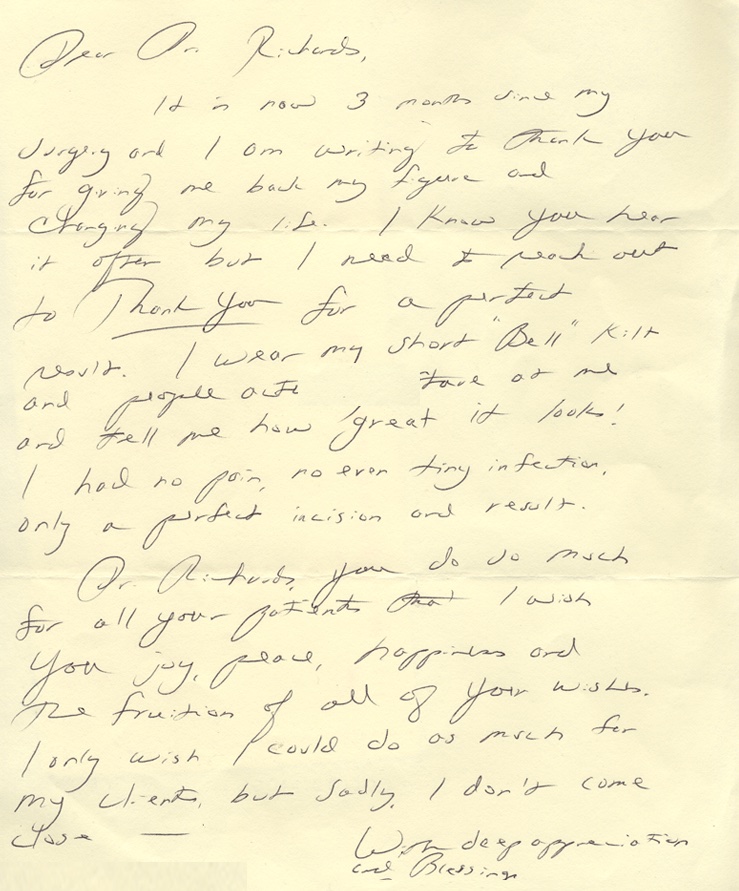 Dear Dr. Richards,
It is now 3 months since my
surgery and I am writing to thank you
for giving me back my figure and
changing my life. I know you hear
it often but I need to reach out
to Thank You for a perfect
result. I wear my short "Bell" Kilt
and people at me
and tell me how great it looks!
I had no pain, no even tiny infection,
only a perfect incision and result.
Dr. Richards, you do so much
for all your patients that I wish
you joy, peace, happiness and
the fruition of all of your wishes.
I only wish I could do as much for
my clients, but sadly, I don't come
close —
With deep appreciation
and Blessings